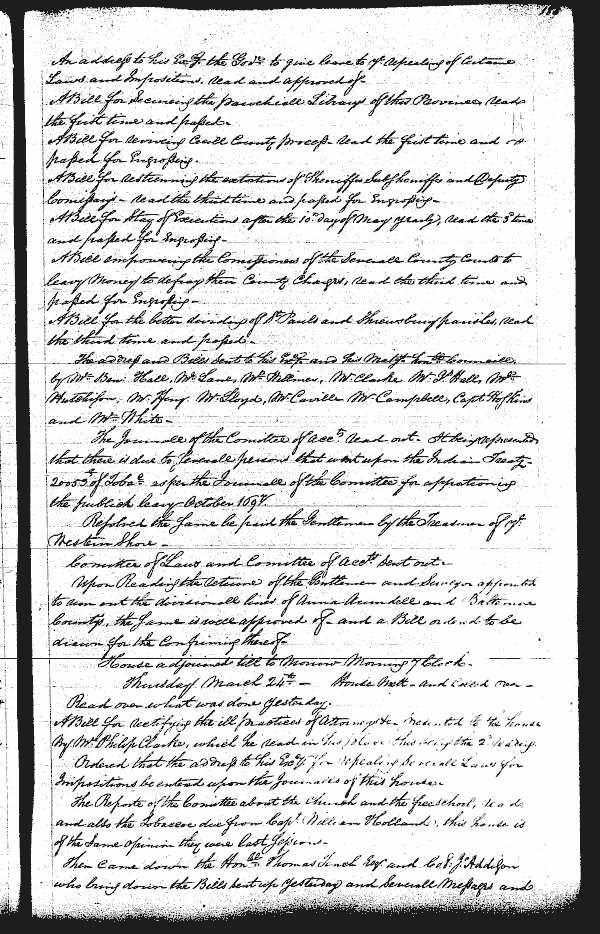 An address to his Exy. the Govr. to give leave to ye repealing of Certaine
Laws and Impositions, read and approved of
A Bill for Secureing the parochiall Library of this Province, read
the first time and passed.
A Bill for reviving Civill County process - read the first time and
passed for Engrossing -
A Bill for restraining the extortions of Sheriffes Subsheriffes and Deputy
Comissarys - read the third time and passed for Engrossing -
A Bill for Stay of Executions after the 10th day of May yearly, read the 3d time
and passed for Engrossing -
A Bill empowering the Comissioners of the Severall County Courts to
leavy Money to defray their County Charges, read the third time and
passed for Engrossing -
A Bill for the better dividing of St. Pauls and Shrewsbury parishes, read
the third time and passed -
The address and Bills sent to his Exy. and his Matys. honble Councill
by Mr. Ben: Hall, Mr. Lane, Mr. Mr. Clarke Mr. Hells, Mr.
Hutchison, Mr. Mr. Lloyd, Mr. Caville Mr. Campbell, Capt.
and Mr. White -
The Journall of the Comittee of Accts. read out - It being represented
that there is due to Severall persons that went upon the Indian Treaty
of Tobo. as per the Journall of the Comittee for apportioning
the publick leavy October
Resolved the Same be paid the Gentlemen by the Treasurer of ye
Western Shore -
Comittee of Laws and Comittee of Accts. Sent out -
Upon Reading the returne of the Gentlemen and Surveyor appointed
to run out the divisionall lines of Anna Arundell and Baltemore
Countys, the Same is well approved of - and a Bill ordered to be
drawn for the Confirming thereof -
House adjourned till to Morrow Morning 7 Clock -
Thursday March 24th - House Mett - and Called over -
Read over what was done yesterday.
A Bill for rectifying the ill practices of Attorneys &c. presented to the house
by Mr. Philip Clarke, which he read in his place this being the 2d reading
Ordered that the address to his Exy. for repealing Severall Laws for
Impositions be entered upon the Journalls of this house -
The Reporte of the Comittee about the Church and the free school, read
and also the Tobaccoe due from Capt. William Holland, this house is
of the Same opinion they were last Sessions -
Then came down the Honble. Thomas Tench Esqr. and Col. Jo. Addison
who bring down the Bills sent up yesterday and Severall Messages and